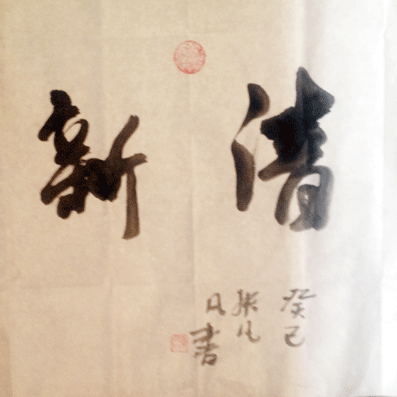 清新
癸巳
张凡
凡書